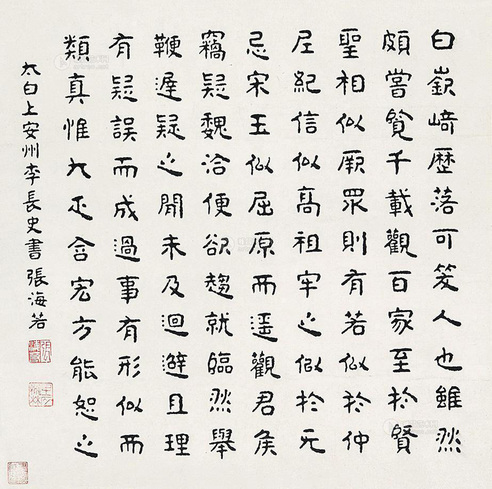 白嶔崎歷落可笑人也雖然
頗嘗覽千載觀百家至於賢
聖相似厥眾則有若似於仲
尼紀信似高祖牢之似於无
忌宋玉似屈原而遥觀君侯
竊疑魏洽便欲趨就臨然舉
鞭遲疑之間未及迴避且理
有疑誤而成過事有形似而
類真惟大疋含宏方能恕之
太白上安州李長史書 張海若